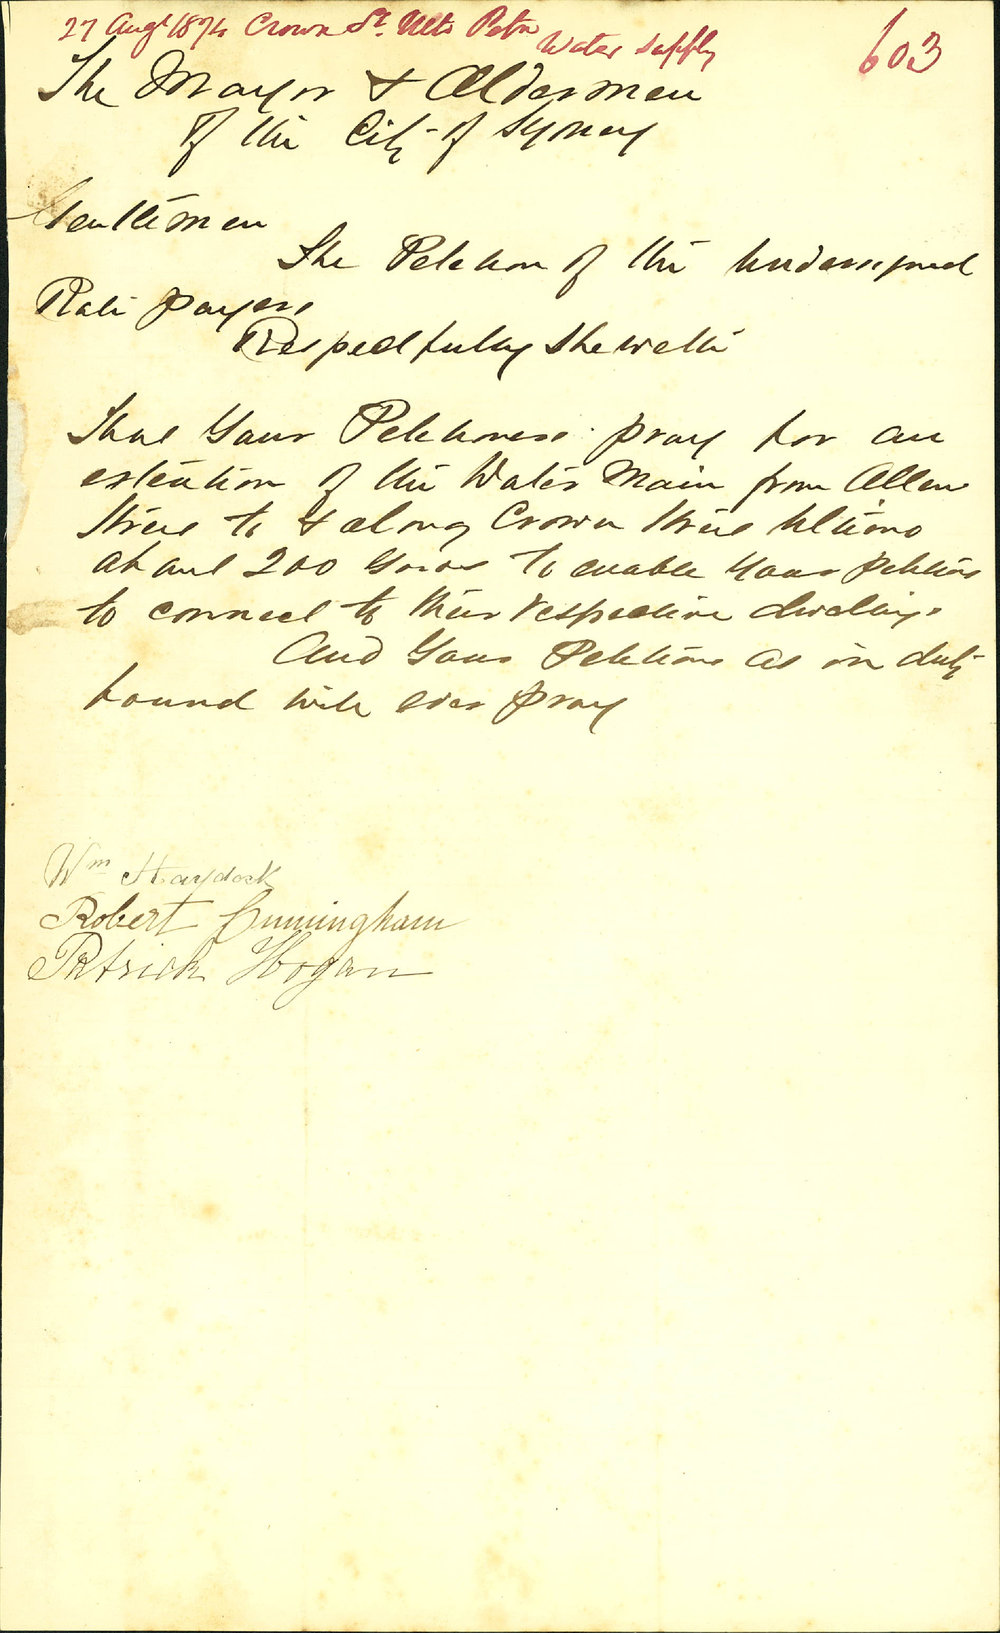 27 Augt 1874 Crown St. Ults Petn
Water Supply
603
The Mayor & Aldermen
of the City of Sydney
Gentlemen
The Petition of the Undersigned
Rate payers
Respectfully Sheweth
That Your Petitioners pray for an
extention of the Water Main from Allen
Street to & along Crown Street Ultimo
about 200 Yards to enable Your Petitions
to connect to their respective dwellings
And Your Petitions as in duty
bound will ever pray
Wm Haydock
Robert Cunningham
Patrick Hogan